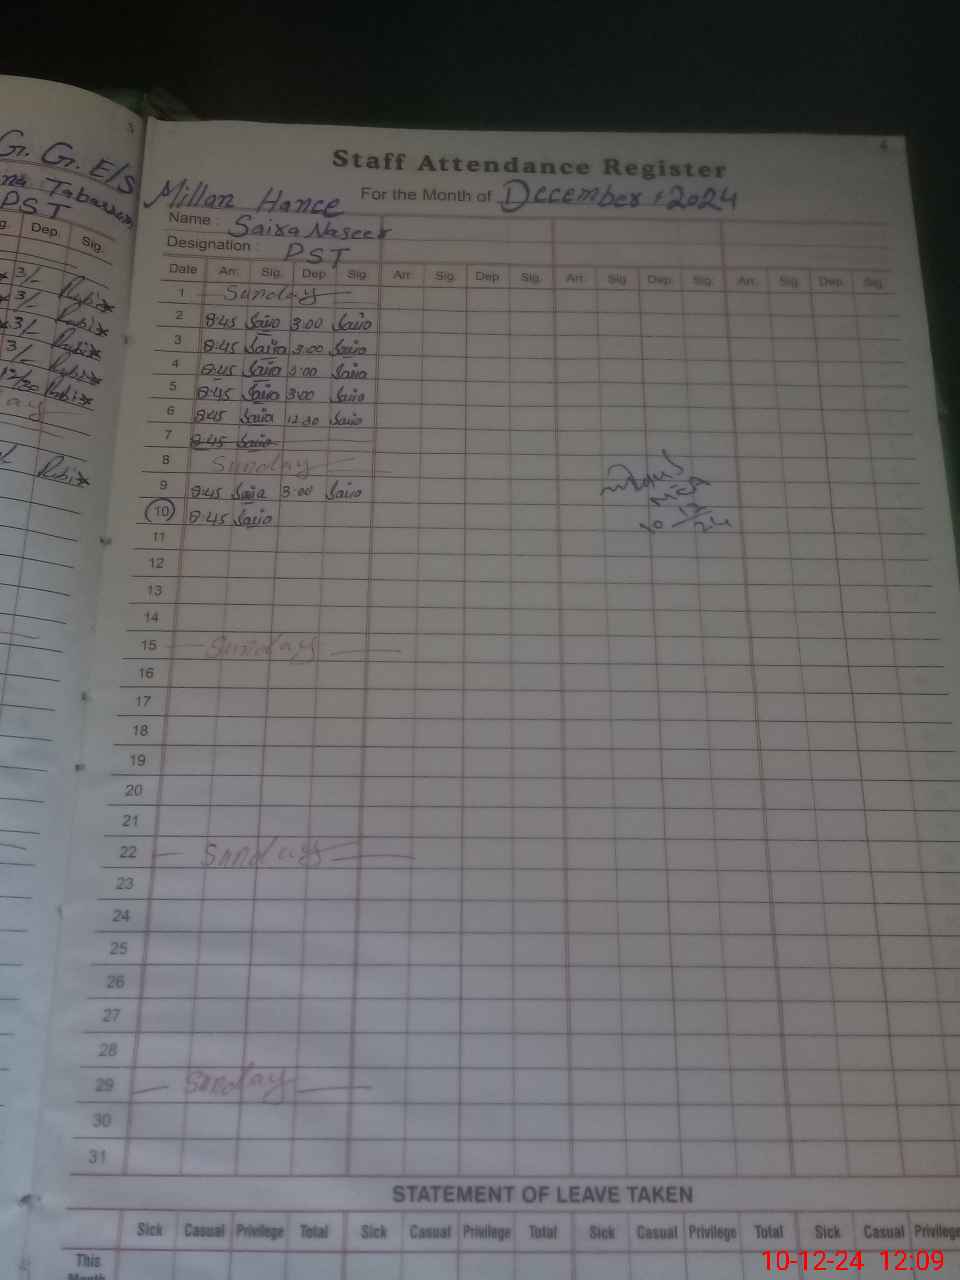 3
G. G. E/S
Tabassum
PST
Dep. Sig.
3/-
3/-
3/-
3/-
12/30
4
Staff Attendance Register
Millan Hance For the Month of December, 2024
Name : Saira Naseer
Designation : PST
Date Arr. Sig. Dep Sig Arr. Sig. Dep Sig. Arr. Sig Dep. Sig. Arr. Sig. Dep. Sig.
1 Sunday
2 8:45 Saira 3:00 Saira
3 8:45 Saira 3:00 Saira
4 8:45 Saira 3:00 Saira
5 8:45 Saira 3:00 Saira
6 8:45 Saira 12:30 Saira
7 8:45 Saira
8 Sunday
9 8:45 Saira 3:00 Saira
10 8:45 Saira
10 12 24
11
12
13
14
15 Sunday
16
17
18
19
20
21
22 Sunday
23
24
25
26
27
28
29 Sunday
30
31
STATEMENT OF LEAVE TAKEN
Sick Casual Privilege Total Sick Casual Privilege Total Sick Casual Privilege Total Sick Casual Privilege
This
Month
10-12-24 12:09